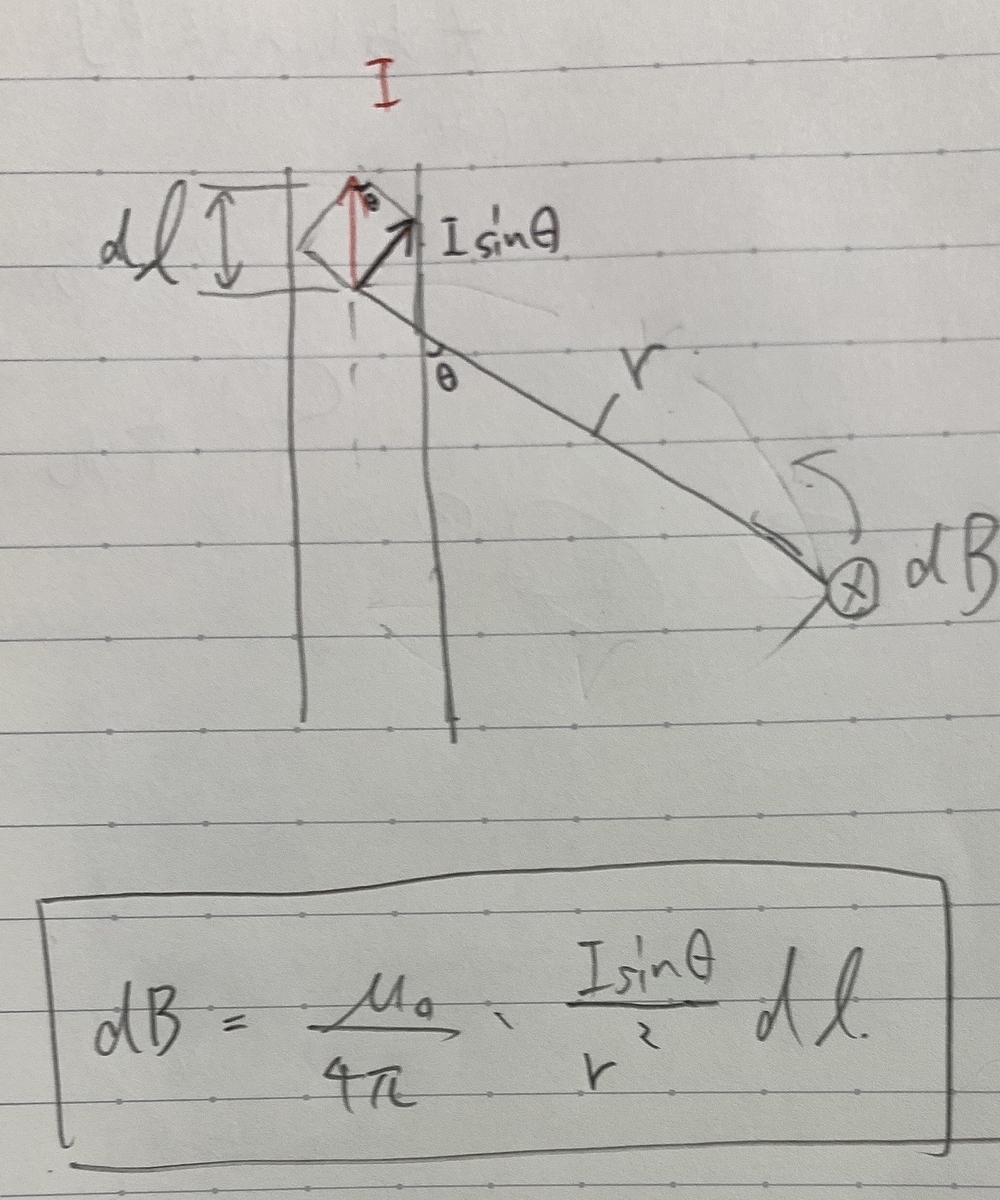 I
dl
θ
I sinθ
θ
r
dB
dB = μ₀/4π · I sinθ/r² dl.